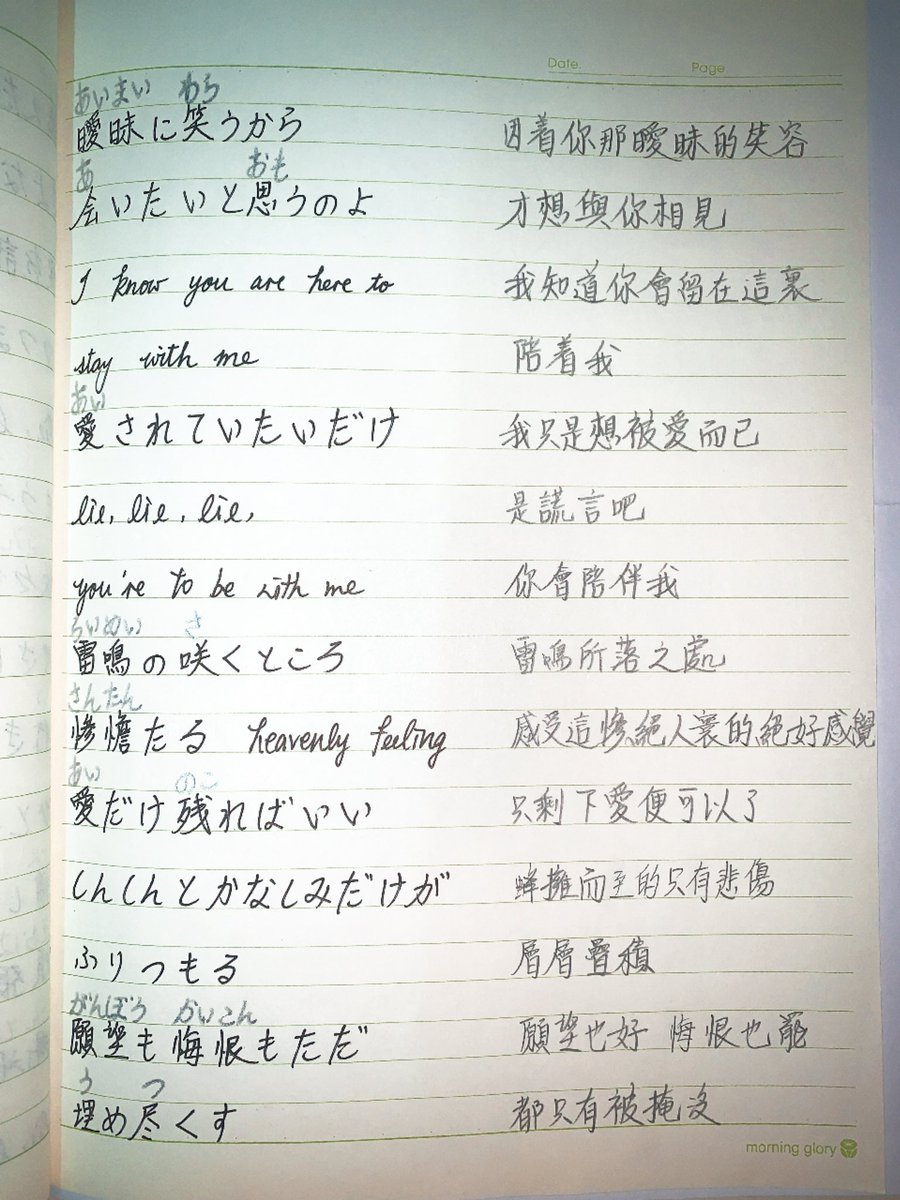 Date. Page
あいまい わら
曖昧に笑うから 因着你那曖昧的笑容
あ おも
会いたいと思うのよ 才想與你相見
I know you are here to 我知道你會留在這裏
stay with me 陪着我
あい
愛されていたいだけ 我只是想被愛而已
lie, lie, lie, 是謊言吧
you're to be with me 你會陪伴我
らいめい さ
雷鳴の咲くところ 雷鳴所落之處
さんたん
惨憺たる heavenly feeling 感受這慘絕人裏的絕好感覺
あい のこ
愛だけ残ればいい 只剩下愛便可以了
しんしんとかなしみだけが 蜂擁而至的只有悲傷
ふりつもる 層層疊積
がんぼう かいこん
願望も悔恨もただ 願望也好 悔恨也罷
う つ
埋め尽くす 都只有被掩沒
morning glory